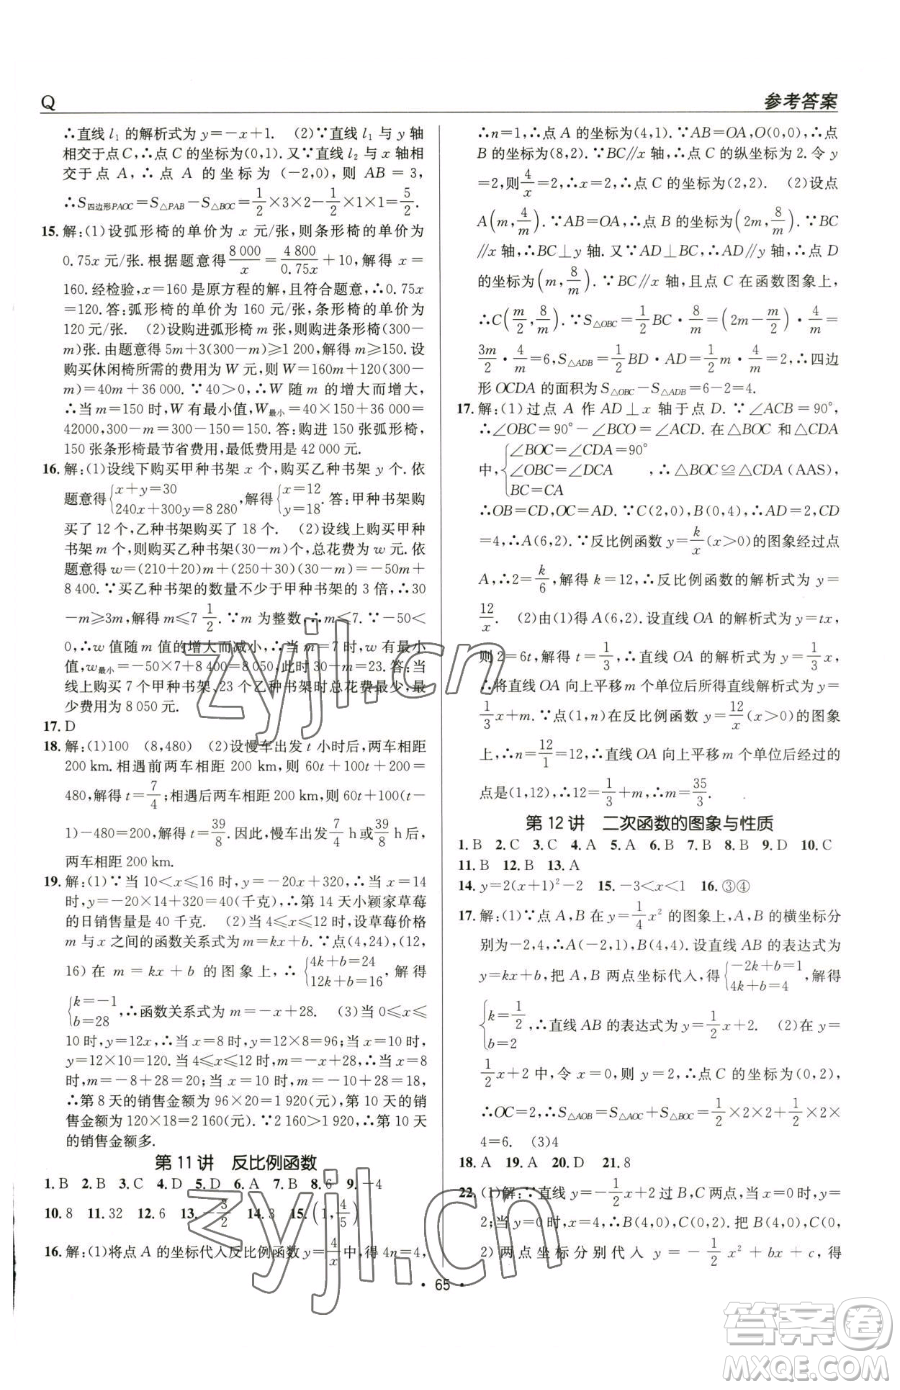 Q
参考答案
∴直线 l₁ 的解析式为 y=-x+1. (2)∵直线 l₁ 与 y 轴
相交于点 C,∴点 C 的坐标为(0,1). 又∵直线 l₂ 与 x 轴
相交于点 A,∴点 A 的坐标为(-2,0),则 AB=3,
∴S四边形PAOC=S△PAB-S△BOC=1/2×3×2-1/2×1×1=5/2.
15. 解:(1)设弧形椅的单价为 x 元/张,则条形椅的单价为
0.75x 元/张. 根据题意得 8 000/x=4 800/0.75x+10,解得 x=
160. 经检验,x=160 是原方程的解,且符合题意,∴0.75x
=120. 答:弧形椅的单价为 160 元/张,条形椅的单价为
120 元/张. (2)设购进弧形椅 m 张,则购进条形椅(300-
m)张. 由题意得 5m+3(300-m)≥1 200,解得 m≥150. 设
购买休闲椅所需的费用为 W 元,则 W=160m+120(300-
m)=40m+36 000. ∵40>0,∴W 随 m 的增大而增大,
∴当 m=150 时,W 有最小值,W最小=40×150+36 000=
42000,300-m=300-150=150. 答:购进 150 张弧形椅,
150 张条形椅最节省费用,最低费用是 42 000 元.
16. 解:(1)设线下购买甲种书架 x 个,购买乙种书架 y 个. 依
题意得{x+y=30 240x+300y=8 280,解得{x=12 y=18. 答:甲种书架购
买了 12 个,乙种书架购买了 18 个. (2)设线上购买甲种
书架 m 个,则购买乙种书架(30-m)个,总花费为 w 元. 依
题意得 w=(210+20)m+(250+30)(30-m)=-50m+
8 400. ∵买乙种书架的数量不少于甲种书架的 3 倍,∴30
-m≥3m,解得 m≤7 1/2. ∵m 为整数,∴m≤7. ∵-50<
0,∴w 值随 m 值的增大而减小,∴当 m=7 时,w 有最
小值,w最小=-50×7+8 400=8 050,此时 30-m=23. 答:当
线上购买 7 个甲种书架,23 个乙种书架时总花费最少,最
少费用为 8 050 元.
17. D
18. 解:(1)100 (8,480) (2)设慢车出发 t 小时后,两车相距
200 km. 相遇前两车相距 200 km 时,则 60t+100t+200=
480,解得 t=7/4;相遇后两车相距 200 km,则 60t+100(t
-1)-200=480,解得 t=39/8. 因此,慢车出发 7/4 h 或 39/8 h 时,
两车相距 200 km.
19. 解:(1)∵当 10<x≤16 时,y=-20x+320,∴当 x=14
时,y=-20×14+320=40(千克),∴第 14 天小颖家草莓
的日销售量是 40 千克. (2)当 4≤x≤12 时,设草莓价格
m 与 x 之间的函数关系式为 m=kx+b. ∵点(4,24),(12,
16)在 m=kx+b 的图象上,∴{4k+b=24 12k+b=16,解得
{k=-1 b=28,∴函数关系式为 m=-x+28. (3)当 0≤x≤
10 时,y=12x,∴当 x=8 时,y=12×8=96;当 x=10 时,
y=12×10=120. 当 4≤x≤12 时,m=-x+28,∴当 x=8
时,m=-8+28=20;当 x=10 时,m=-10+28=18,
∴第 8 天的销售金额为 96×20=1 920(元),第 10 天的
销售金额为 120×18=2 160(元). ∵2 160>1 920,∴第 10 天
的销售金额多.
第 11 讲 反比例函数
1. B 2. B 3. C 4. A 5. D 6. B 7. B 8. 6 9. -4
10. 8 11. 32 12. 6 13. -3/2 14. 3 15. (1,4/5)
16. 解:(1)将点 A 的坐标代入反比例函数 y=4/x 中,得 4n=4,
∴n=1,∴点 A 的坐标为(4,1). ∵AB=OA,O(0,0),∴点
B 的坐标为(8,2). ∵BC∥x 轴,∴点 C 的纵坐标为 2. 令 y
=2,则 4/x=2,∴x=2,∴点 C 的坐标为(2,2). (2)设点
A(m,4/m). ∵AB=OA,∴点 B 的坐标为(2m,8/m). ∵BC
∥x 轴,∴BC⊥y 轴. 又∵AD⊥BC,∴AD∥y 轴,∴点 D 的
坐标为(m,8/m). ∵BC∥x 轴,且点 C 在函数图象上,
∴C(m/2,8/m). ∵S△OBC=1/2BC·8/m=1/2·(2m-m/2)·8/m=1/2·
3m/2·8/m=6,S△ADB=1/2BD·AD=1/2m·4/m=2,∴四边
形 OCDA 的面积为 S△OBC-S△ADB=6-2=4.
17. 解:(1)过点 A 作 AD⊥x 轴于点 D. ∵∠ACB=90°,
∴∠OBC=90°-∠BCO=∠ACD. 在△BOC 与△CDA
中,{∠BOC=∠CDA ∠OBC=∠DCA BC=CA,∴△BOC≌△CDA(AAS),
∴OB=CD,OC=AD. ∵C(2,0),B(0,4),∴AD=2,CD
=4,∴A(6,2). ∵反比例函数 y=k/x(x>0)的图象经过点
A,∴2=k/6,解得 k=12,∴反比例函数的解析式为 y=
12/x. (2)由(1)得 A(6,2),设直线 OA 的解析式为 y=tx,
则 2=6t,解得 t=1/3,∴直线 OA 的解析式为 y=1/3x,
∴将直线 OA 向上平移 m 个单位后所得直线解析式为 y=
1/3x+m. ∵点(1,n)在反比例函数 y=12/x(x>0)的图象
上,∴n=12/1=12,∴直线 OA 向上平移 m 个单位后经过的
点是(1,12),∴12=1/3+m,∴m=35/3.
第 12 讲 二次函数的图象与性质
1. B 2. C 3. C 4. A 5. A 6. B 7. B 8. B 9. D 10. C
11. B 12. B 13. A
14. y=2(x+1)²-2 15. -3<x<1 16. ③④
17. 解:(1)∵点 A,B 在 y=1/4x² 的图象上,A,B 的横坐标分
别为-2,4,∴A(-2,1),B(4,4). 设直线 AB 的表达式为
y=kx+b,把 A,B 两点坐标代入,得{-2k+b=1 4k+b=4,解得
{k=1/2 b=2,∴直线 AB 的表达式为 y=1/2x+2. (2)在 y=
1/2x+2 中,令 x=0,则 y=2,∴点 C 的坐标为(0,2),
∴OC=2,∴S△AOB=S△AOC+S△BOC=1/2×2×2+1/2×2×
4=6. (3)4
18. A 19. A 20. D 21. 8
22. (1)解:∵直线 y=-1/2x+2 过点 B,C,∴当 x=0 时,y=
2;当 y=0 时,x=4,∴B(4,0),C(0,2). 把 B(4,0),C(0,
2)两点坐标分别代入 y=-1/2x²+bx+c 中,得
· 65 ·
zyjl.cn
zyjl.cn
答案圈
MXQE.COM